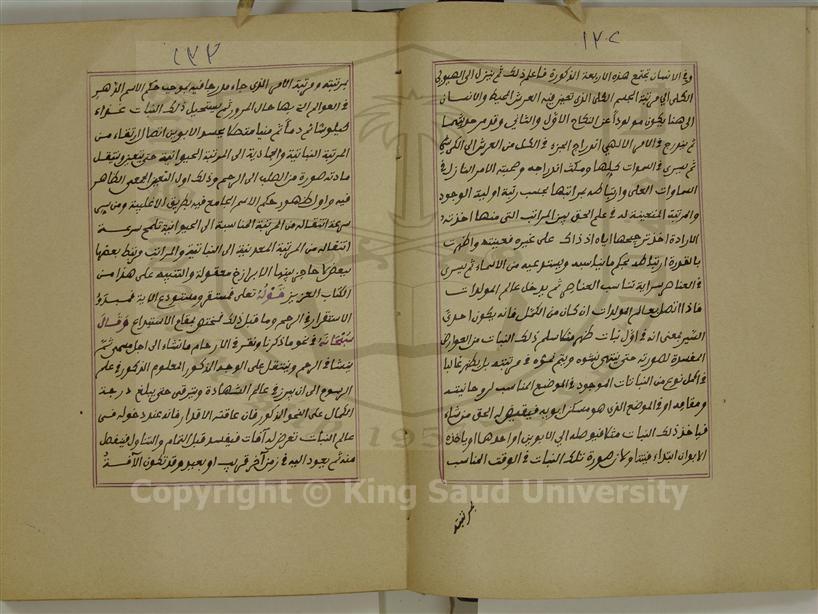 ١٣٢
وفي الانسان تجتمع هذه الاربعة المذكورة فاعلم ذلك ثم ينزل الى الهيولى
الكلي الى مرتبة الجسم الكلي الذي تعين فيه العرش المحيط والانسان
الى هنا يكون مولودا عن النكاح الاول والثاني وقد مر حديثهما
ثم يندرج في الامر الالهي اندراج الجزء في الكل من العرش الى الكرسي
ثم يسري في السموات كلها ومكث اندراجه وصحبة الامر النازل في
السماوات العلى وارتباطه بمراتبها بحسب رتبة اولية الوجود
والمرتبة المتعينة له في علم الحق بين المراتب التي منها اخذته
الارادة اخذ ترجيحها اياه اذ ذاك على غيره فعينته واظهرته
بالقدرة ارتباطه بحكم ما يناسبه ويستوعبه من الاسماء ثم يسري
في العناصر سراية تناسب العناصر ثم يدخل عالم المولدات
فاذا اتصل بعالم المولدات ان كان من الكمل فانه يكون احدي
السير بمعنى انه في اول نبات ظهر مثلا سلم ذلك النبات من العوارض
المفسدة لصورته حتى ينتهي نشوه ويتم نموه في مرتبته بل يظهر غالبا
في اكمل نوع من النباتات الموجود في الموضع المناسب لروحانيته
ومقامه او في الموضع الذي هو مسكن ابويه فيقيض له الحق من شاء
فياخذ ذلك النبات مثلا فيوصله الى الابوين او احدهما او ياخذه
الابوان ابتداء فيتناولان صورة تلك النبات في الوقت المناسب
١٣٣
لمرتبته ومرتبة الامر الذي جاء مندرجا فيه بموجب حكم الاسم الدهر
في العوالم التي بها حال المرور ثم يستحيل ذلك النبات غذاء
كيلوسا ثم دما ثم منيا متصلا بجسد الابوين اتصال ارتقاء من
المرتبة النباتية والجمادية الى المرتبة الحيوانية حتى تتعين وتنتقل
مادته صورة من الصلب الى الرحم وذلك اول التعين الجمعي الظاهر
فيه واول ظهور حكم الاسم الجامع فيه بطريق الاغلبية ومن سر
سرعة انتقاله من المرتبة المناسبة الى الحيوانية تلمح سرعة
انتقاله من المرتبة المعدنية الى النباتية والمراتب مرتبط بعضها
ببعض لا حاجز بينها الا برازخ معقولة والتنبيه على هذا من
الكتاب العزيز قوله تعالى فمستقر ومستودع الاية فمبدؤ
الاستقرار في الرحم وما قبل ذلك فمختص بمقام الاستيداع وقال
سبحانه في نحو ما ذكرنا ونقر في الارحام ما نشاء الى اجل مسمى ثم
ينشا في الرحم وينتقل على الوجه المذكور المعلوم المذكور في علم
الرسوم الى ان يبرز في عالم الشهادة ويترقى حتى يبلغ درجة
الكمال على النحو المذكور فان عاقته الاقدار فانه عند دخوله في
عالم النبات تعرض له آفات فيفسد قبل التمام والتناول فينفصل
منه ثم يعود اليه في زمن آخر قريب او بعيد وقد تكون الآفة
لمرتبته
Copyright © King Saud University
1957